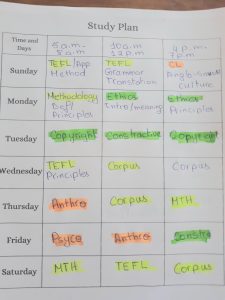 Study Plan
Time and Days
5 a.m. 8 a.m
10 a.m 12 p.m
4 p.m. 7 p.m
Sunday
TEFL/App Method
TEFL Grammar Translation
CL culture
Monday
Methodology Def/ Principles
Ethics Intro/meaning
Ethics Principles
Tuesday
Copyright
Constractive
Copyright
Wednesday
TEFL Principles
Corpus
Corpus
Thursday
Anthro
Corpus
MTH
Friday
Psyco
Anthro
Constra
Saturday
MTH
TEFL
Corpus